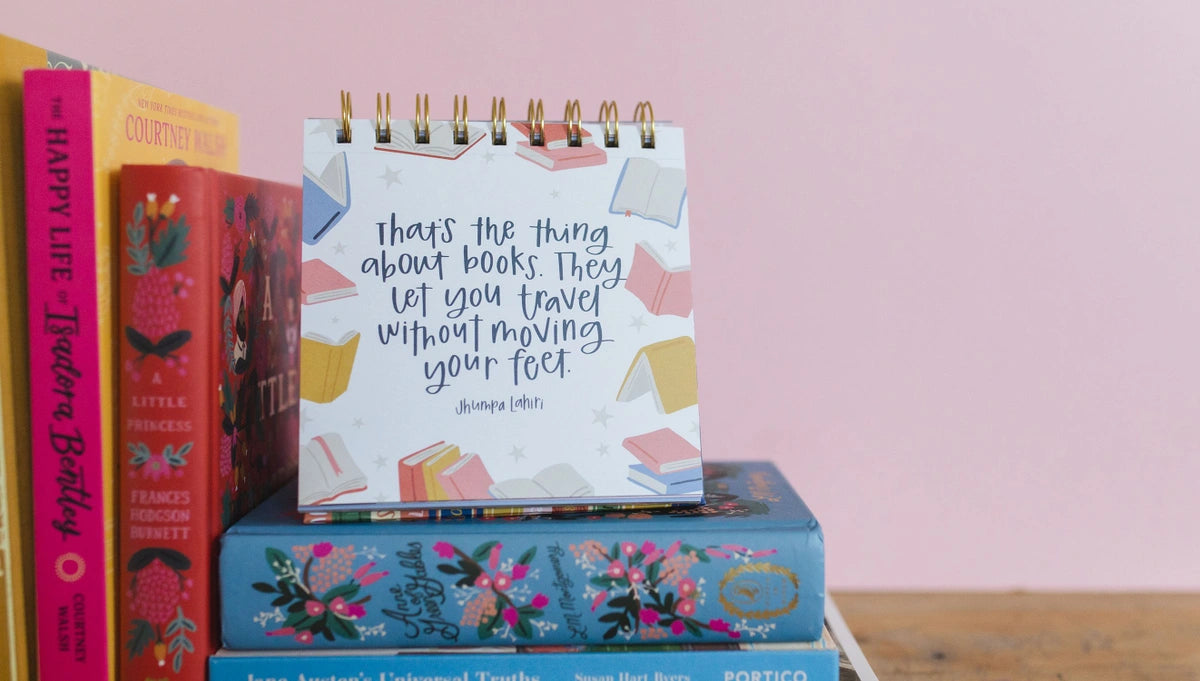 THE HAPPY LIFE OF Isadora Bentley
COURTNEY WALSH
NEW YORK TIMES BESTSELLING AUTHOR
COURTNEY WALSH
A
LITTLE
PRINCESS
FRANCES
HODGSON
BURNETT
A
That's the thing
about books. They
let you travel
without moving
your feet.
Jhumpa Lahiri
Anne of
Green Gables
LM Montgomery
Jane Austen's Universal Truths
Susan Hart Byers
PORTICO